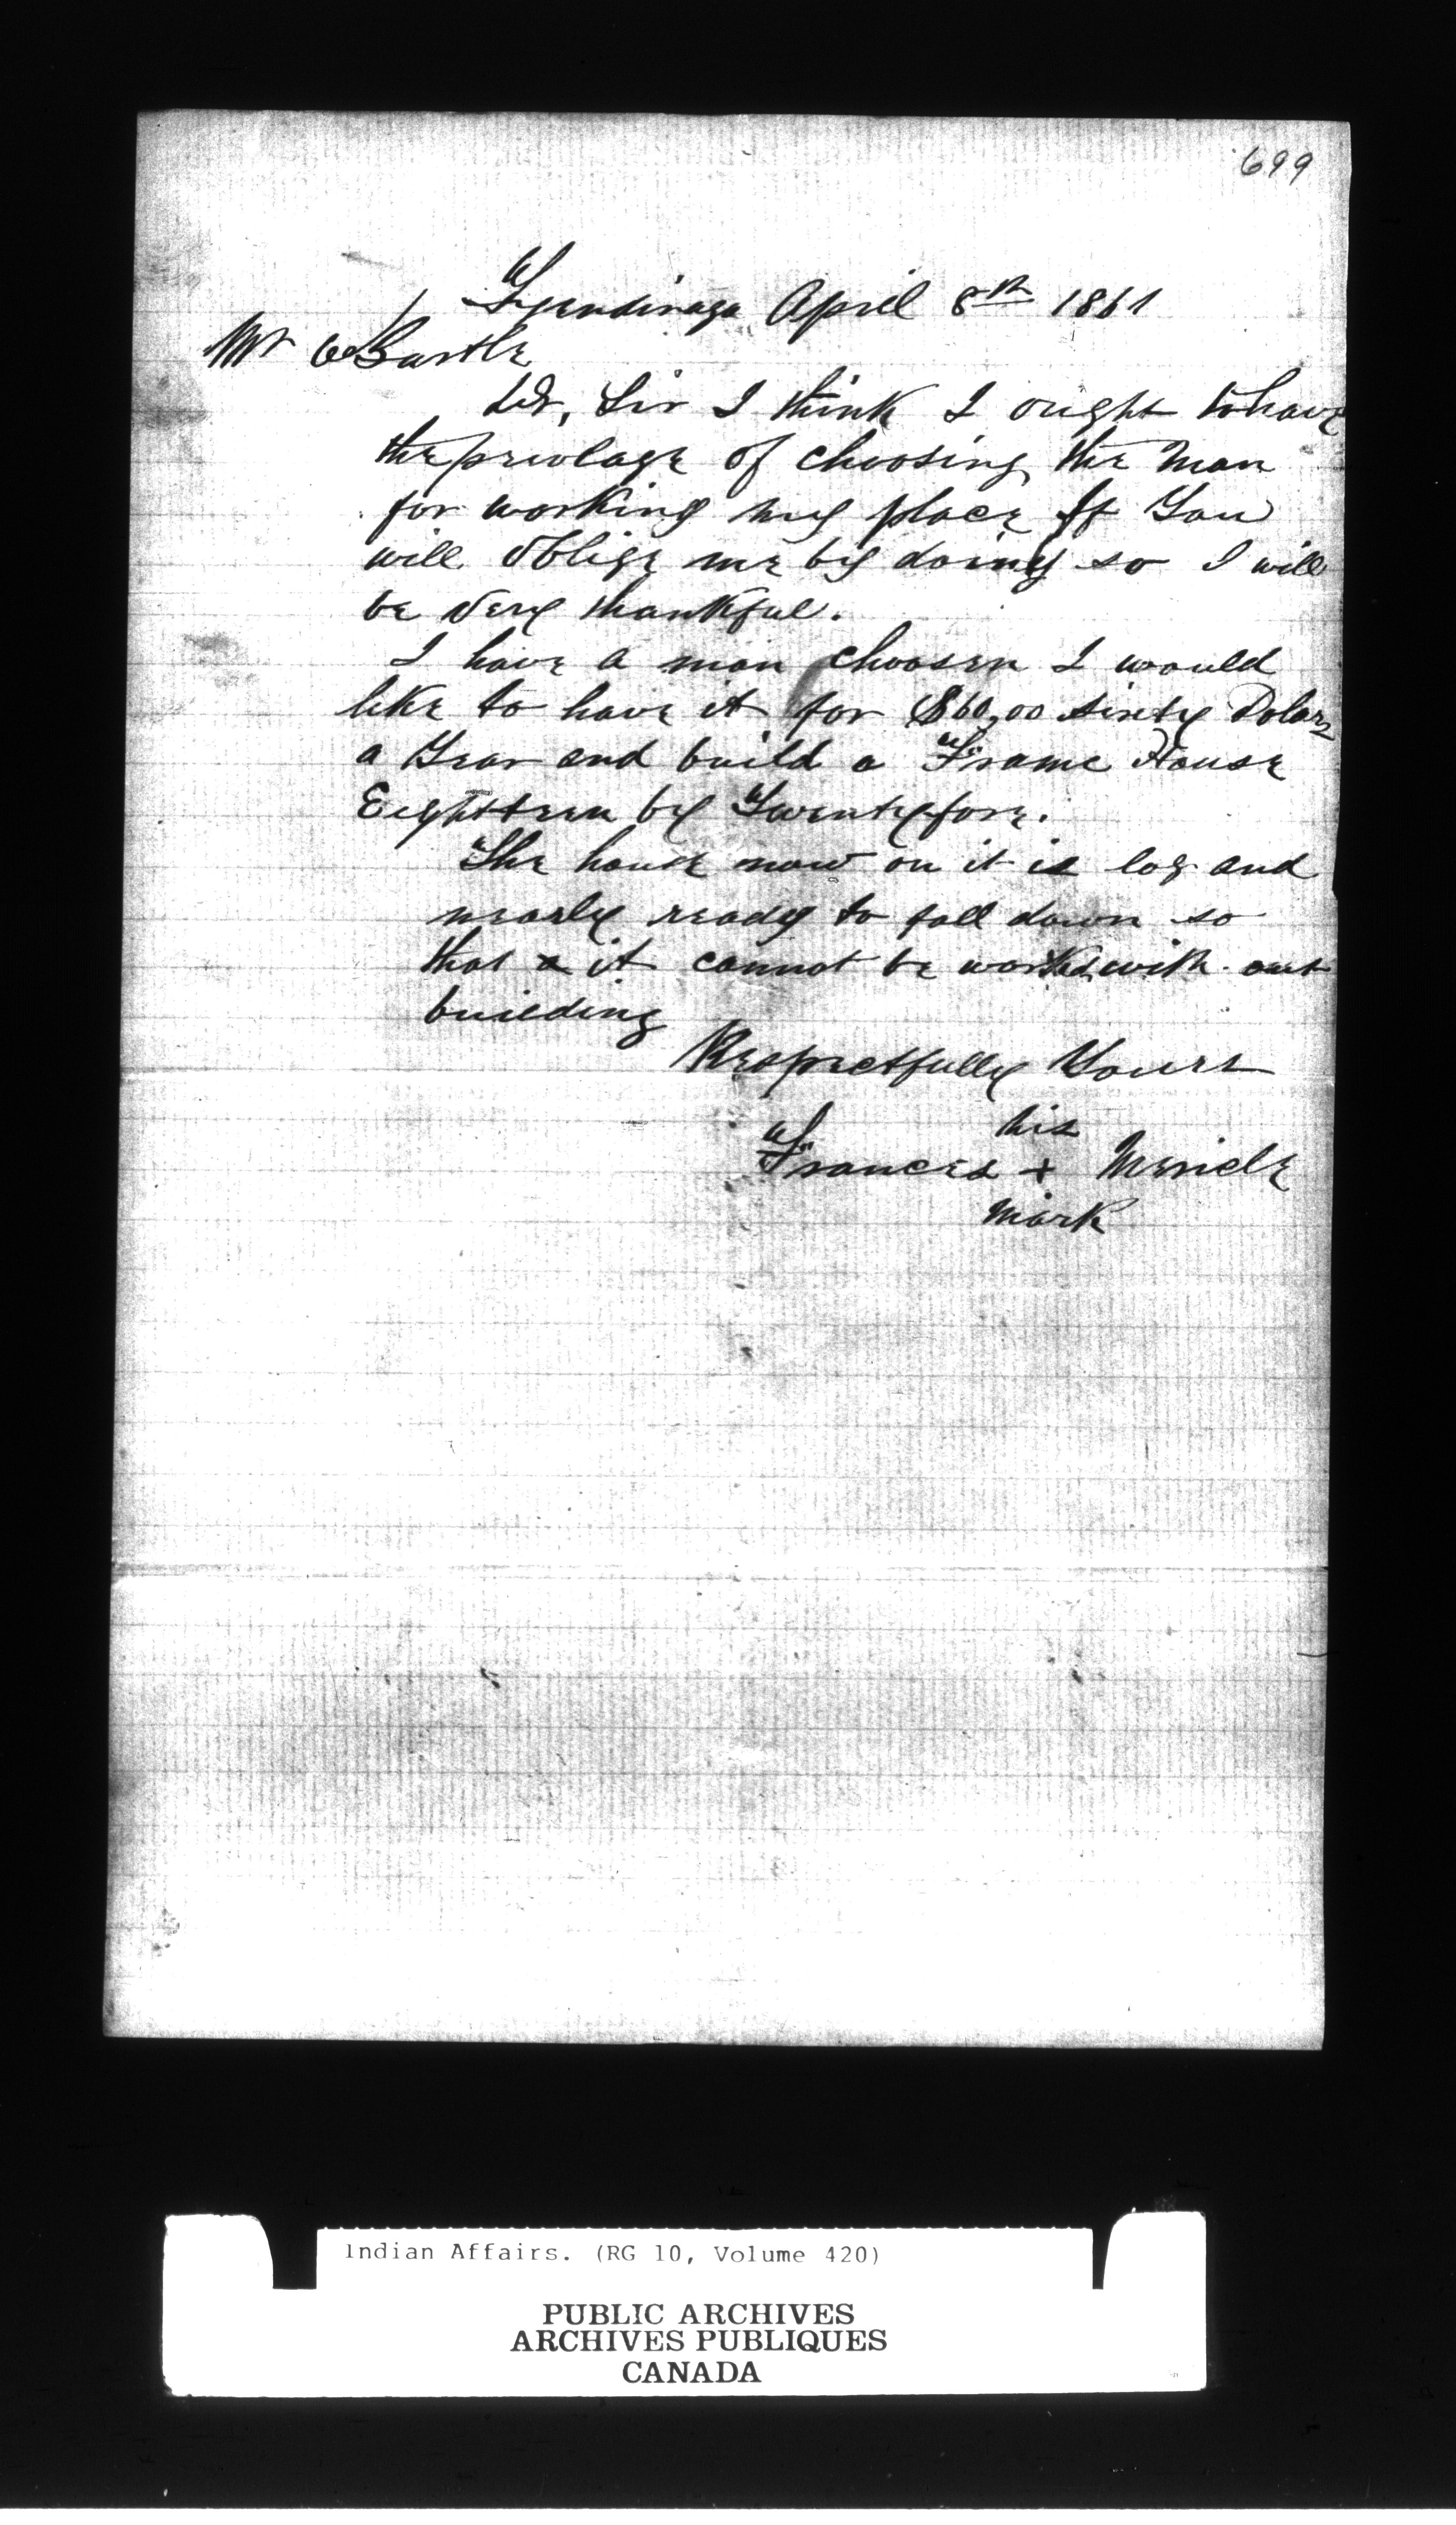 699
Tyendinaga April 8th 1861
Mr
Dr, Sir I think I ought to have
the privolage of choosing the man
for working my place If You
will oblige me by doing so I will
be very thankful.
I have a man choosen I would
like to have it for $60,00 sixty Dolars
a Year and build a Frame House
Eightteen by Twentyfore.
The house now on it is log and
nearly ready to fall down so
that it cannot be worked with out
building
Respectfully Yours
his
Frances + Merricle
mark
Indian Affairs. (RG 10, Volume 420)
PUBLIC ARCHIVES
ARCHIVES PUBLIQUES
CANADA